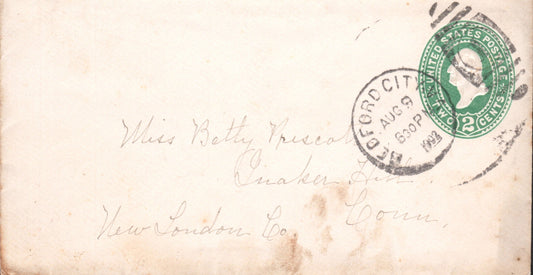 UNITED STATES POSTAGE
TWO 2 CENTS
BEDFORD CITY
AUG 9
630P
Miss Betty Prescott
Quaker Hill
New London Co Conn.